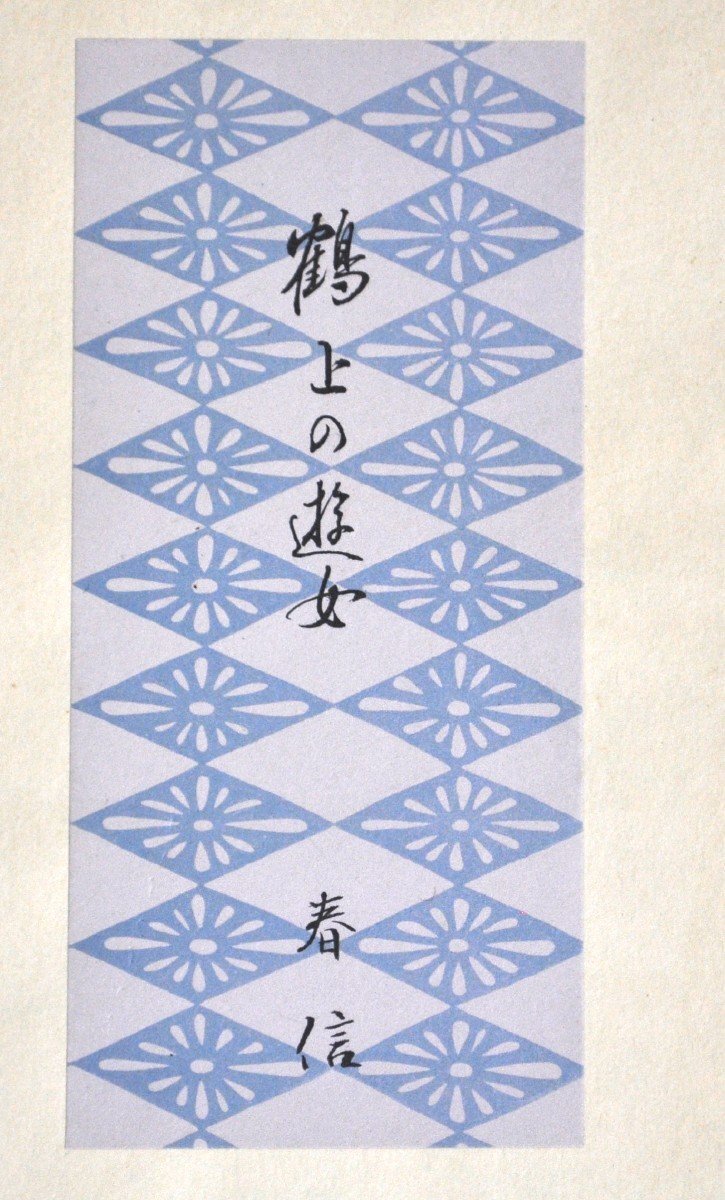 鶴上の遊女
春信